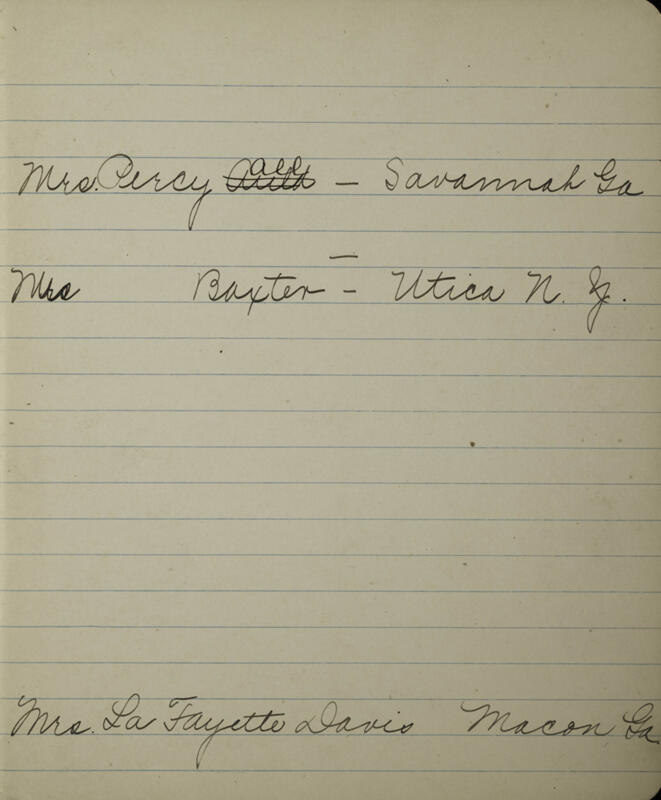 Mrs. Percy — Savannah Ga
—
Mrs Baxter – Utica N. Y.
Mrs. La Fayette Davis Macon Ga.